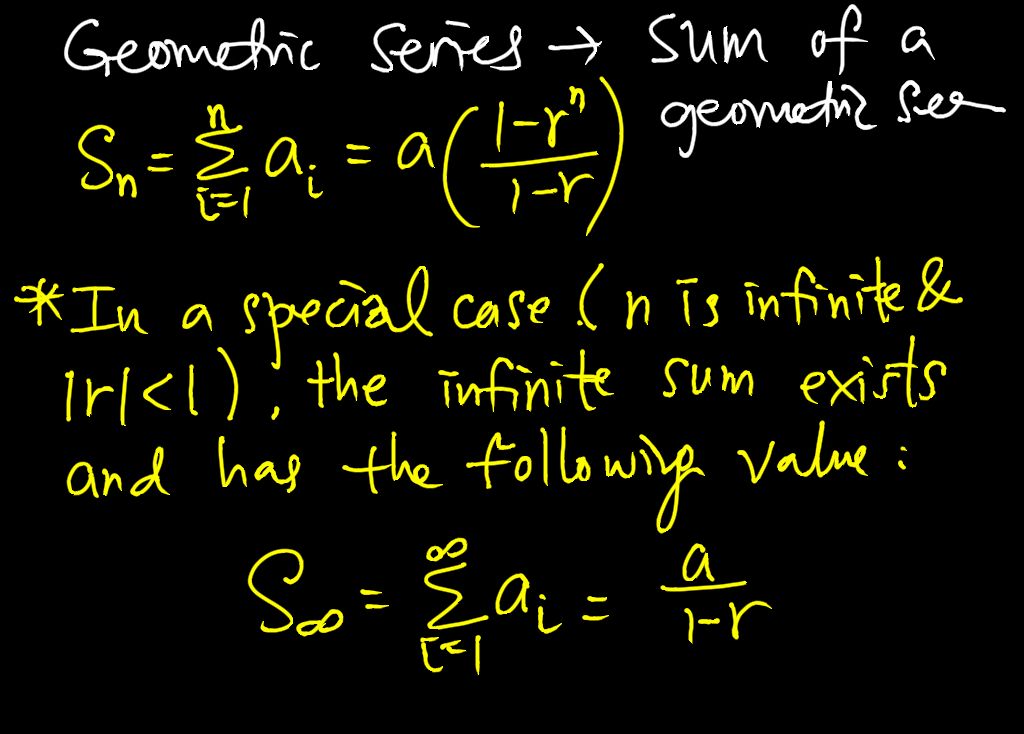 Geometric Series → Sum of a
geometric
Sₙ = ∑ᵢ₌₁ⁿ aᵢ = a((1-rⁿ)/(1-r))
*In a special case (n is infinite &
|r|<1), the infinite sum exists
and has the following value:
S∞ = ∑ᵢ₌₁^∞ aᵢ = a/(1-r)